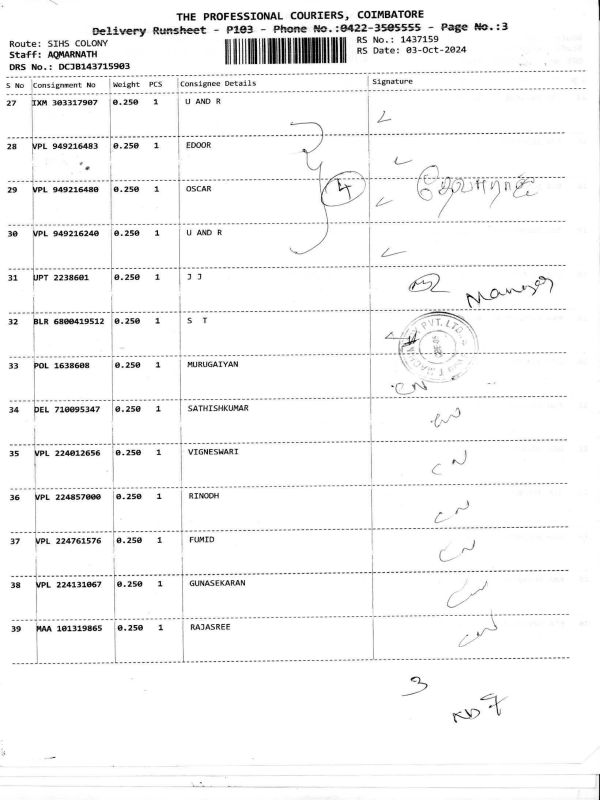 THE PROFESSIONAL COURIERS, COIMBATORE
Delivery Runsheet - P103 - Phone No.:0422-3505555 - Page No.:3
Route: SIHS COLONY
Staff: AQMARNATH
DRS No.: DCJB143715903
RS No.: 1437159
RS Date: 03-Oct-2024
S No Consignment No Weight PCS Consignee Details Signature
27 IXM 303317907 0.250 1 U AND R
28 VPL 949216483 0.250 1 EDOOR
29 VPL 949216480 0.250 1 OSCAR
4
30 VPL 949216240 0.250 1 U AND R
31 UPT 2238601 0.250 1 J J
Manager
32 BLR 6800419512 0.250 1 S T
PVT. LTD
33 POL 1638608 0.250 1 MURUGAIYAN
CN
34 DEL 710095347 0.250 1 SATHISHKUMAR
CN
35 VPL 224012656 0.250 1 VIGNESWARI
CN
36 VPL 224857000 0.250 1 RINODH
CN
37 VPL 224761576 0.250 1 FUMID
CN
38 VPL 224131067 0.250 1 GUNASEKARAN
CN
39 MAA 101319865 0.250 1 RAJASREE
CN
3
ND 7